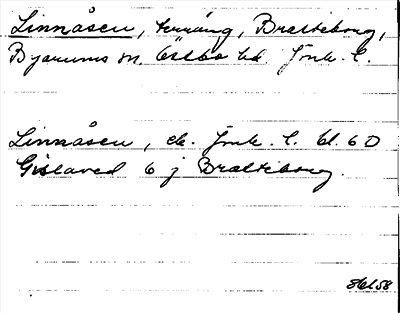 Linnåsen, terräng, Bratteborg,
Byarums sn. Östbo hd. Jönk. l.
Linnåsen, ek. Jönk. l. bl. 6D
Gislaved 6 j Bratteborg.